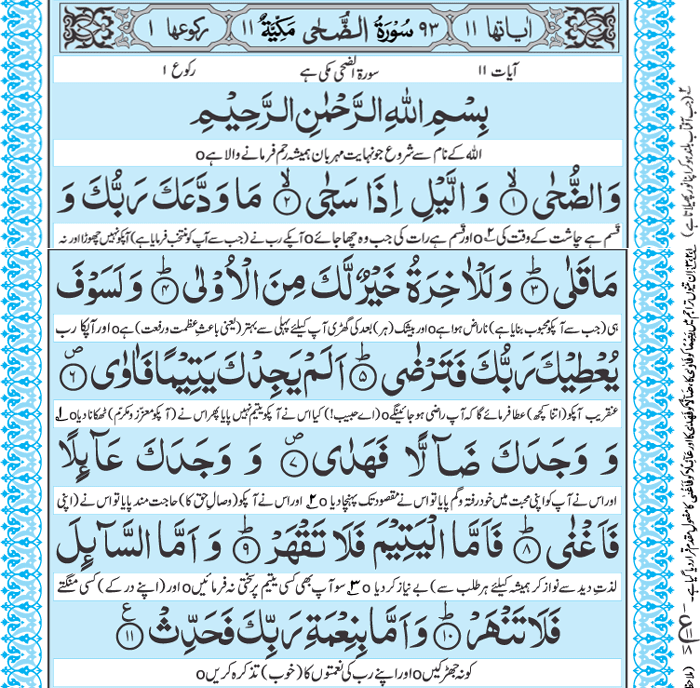 اٰیاتھا ۱۱ ۹۳ سُوْرَةُ الضُّحٰی مَکِّیَّةٌ ۱۱ رکوعھا ۱
آیات ۱۱ سورۃ الضحیٰ مکی ہے رکوع ۱
بِسْمِ اللهِ الرَّحْمٰنِ الرَّحِیْمِ
اللہ کے نام سے شروع جو نہایت مہربان ہمیشہ رحم فرمانے والا ہے o
وَالضُّحٰی ۙ﴿۱﴾ وَ الَّیْلِ اِذَا سَجٰی ۙ﴿۲﴾ مَا وَدَّعَكَ رَبُّكَ وَ
قسم ہے چاشت کے وقت کی ۲ o اور قسم ہے رات کی جب وہ چھا جائے o آپ کے رب نے (جب سے آپ کو منتخب فرمایا ہے) آپ کو نہیں چھوڑا اور نہ
مَا قَلٰی ؕ﴿۳﴾ وَ لَلْاٰخِرَةُ خَیْرٌ لَّكَ مِنَ الْاُوْلٰی ؕ﴿۴﴾ وَ لَسَوْفَ
ہی (جب سے آپ کو محبوب بنایا ہے) ناراض ہوا ہے o اور بیشک (ہر) بعد کی گھڑی آپ کیلئے پہلی سے بہتر (یعنی باعثِ عظمت و رفعت) ہے o اور آپ کا رب
یُعْطِیْكَ رَبُّكَ فَتَرْضٰی ؕ﴿۵﴾ اَلَمْ یَجِدْكَ یَتِیْمًا فَاٰوٰی ۪﴿۶﴾
عنقریب آپ کو (اتنا کچھ) عطا فرمائے گا کہ آپ راضی ہو جائینگے o (اے حبیب!) کیا اس نے آپ کو یتیم نہیں پایا پھر اس نے (آپ کو معزّز و مکرّم) ٹھکانا دیا o ۱
وَ وَجَدَكَ ضَآلًّا فَهَدٰی ۪﴿۷﴾ وَ وَجَدَكَ عَآئِلًا
اور اس نے آپ کو اپنی محبت میں خود رفتہ و گم پایا تو اس نے مقصود تک پہنچا دیا o ۲ اور اس نے آپ کو (وصالِ حق کا) حاجت مند پایا تو اس نے (اپنی
فَاَغْنٰی ؕ﴿۸﴾ فَاَمَّا الْیَتِیْمَ فَلَا تَقْهَرْ ؕ﴿۹﴾ وَ اَمَّا السَّآئِلَ
لذتِ دید سے نواز کر ہمیشہ کیلئے ہر طلب سے) بے نیاز کر دیا o ۳ سو آپ بھی کسی یتیم پر سختی نہ فرمائیں o اور (اپنے در کے) کسی منگتے
فَلَا تَنْهَرْ ؕ﴿۱۰﴾ وَ اَمَّا بِنِعْمَةِ رَبِّكَ فَحَدِّثْ ﴿۱۱﴾ ع
کو نہ جھڑکیں o اور اپنے رب کی نعمتوں کا (خوب) تذکرہ کریں o